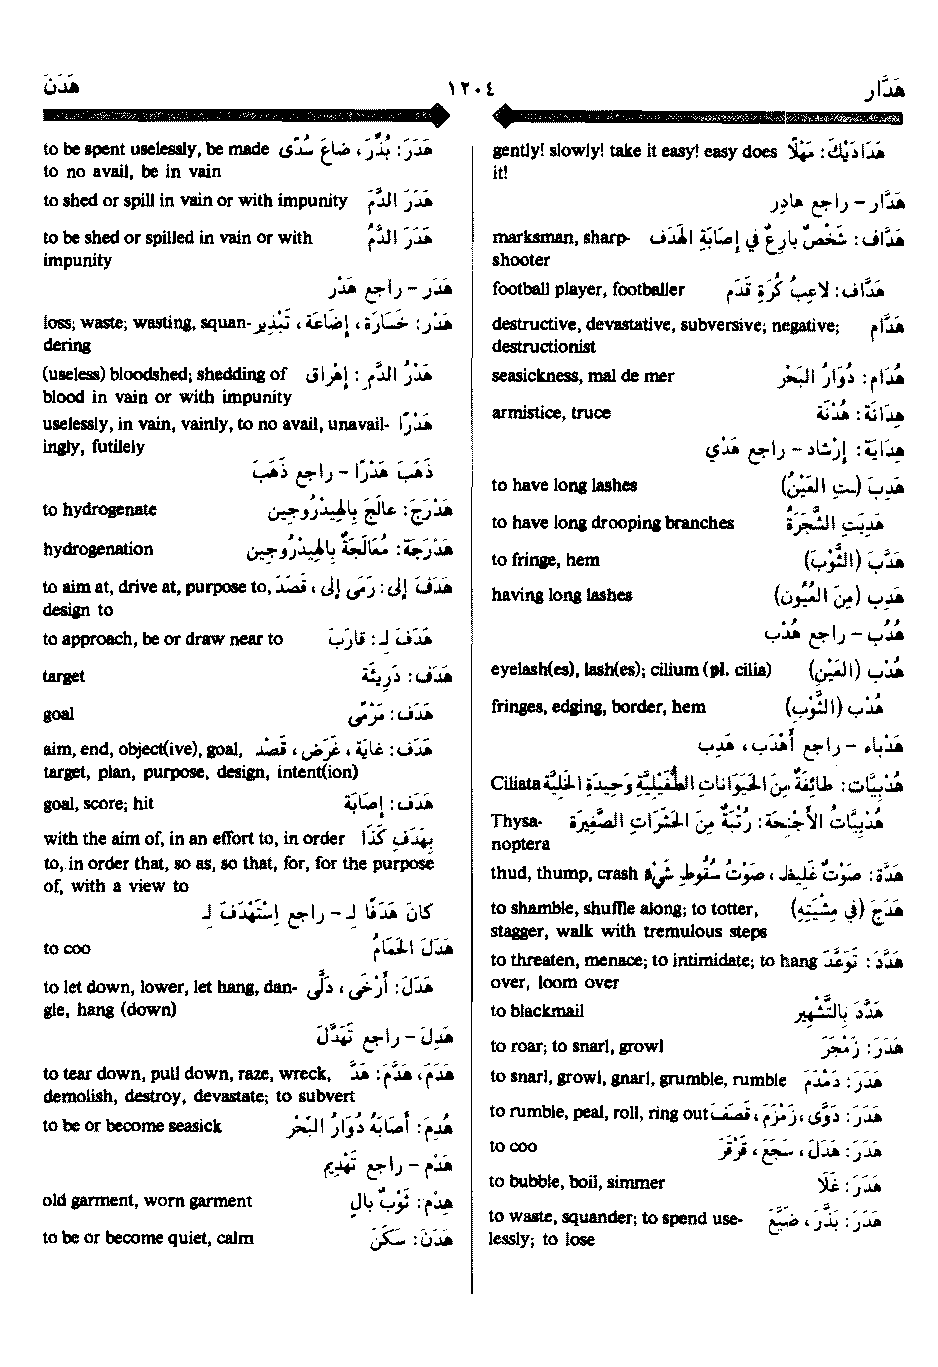 هَدَّار
١٢٠٤
هَدَنَ
هَدَادَيْكَ: مَهْلًا gently! slowly! take it easy! easy does
it!
هَدَّار - راجع هادِر
هَدَّاف: شَخْصٌ بارِعٌ في إصَابَةِ الهَدَف marksman, sharp-
shooter
هَدَّاف: لاعِبُ كُرَةِ قَدَم football player, footballer
هَدَّام destructive, devastative, subversive; negative;
destructionist
هُدَام: دُوَارُ البَحْر seasickness, mal de mer
هِدَانَة: هُدْنَة armistice, truce
هِدَايَة: إرْشاد - راجع هَدْي
هَدِبَ (ـتِ العَيْنُ) to have long lashes
هَدِبَتِ الشَّجَرَةُ to have long drooping branches
هَدَّبَ (الثَّوْبَ) to fringe, hem
هَدِب (مِنَ العُيُون) having long lashes
هُدُب - راجع هُدْب
هُدْب (العَيْنِ) eyelash(es), lash(es); cilium (pl. cilia)
هُدْب (الثَّوْبِ) fringes, edging, border, hem
هَدْباء - راجع أهْدَب، هَدِب
هُدْبِيَّات: طائِفَةٌ مِنَ الحَيَوَانات الطُّفَيْلِيَّةِ وَحِيدَةِ الخَلِيَّة Ciliata
هُدْبِيَّاتُ الأجْنِحَة: رُتْبَةٌ مِنَ الحَشَرَاتِ الصَّغِيرَة Thysa-
noptera
هَدَّة: صَوْتٌ غَلِيظ، صَوْتُ سُقُوطِ شَيْءٍ thud, thump, crash
هَدَجَ (في مِشْيَتِهِ) to shamble, shuffle along; to totter,
stagger, walk with tremulous steps
هَدَّدَ: تَوَعَّدَ to threaten, menace; to intimidate; to hang
over, loom over
هَدَّدَ بِالتَّشْهِير to blackmail
هَدَرَ: زَمْجَرَ to roar; to snarl, growl
هَدَرَ: دَمْدَمَ to snarl, growl, gnarl, grumble, rumble
هَدَرَ: دَوَّى، زَمْزَمَ، قَصَفَ to rumble, peal, roll, ring out
هَدَرَ: هَدَلَ، سَجَعَ، قَرْقَرَ to coo
هَدَرَ: غَلَا to bubble, boil, simmer
هَدَرَ: بَذَّرَ، ضَيَّعَ to waste, squander; to spend use-
lessly; to lose
هَدَرَ: بُذِّرَ، ضاعَ سُدًى to be spent uselessly, be made
to no avail, be in vain
هَدَرَ الدَّمَ to shed or spill in vain or with impunity
هَدَرَ الدَّمُ to be shed or spilled in vain or with
impunity
هَدَر - راجع هَدْر
هَدْر: خَسَارَة، إضَاعَة، تَبْذِير loss; waste; wasting, squan-
dering
هَدْرُ الدَّمِ: إهْرَاق (useless) bloodshed; shedding of
blood in vain or with impunity
هَدْرًا uselessly, in vain, vainly, to no avail, unavail-
ingly, futilely
ذَهَبَ هَدْرًا - راجع ذَهَبَ
هَدْرَجَ: عالَجَ بِالهيدْرُوجين to hydrogenate
هَدْرَجَة: مُعَالَجَةٌ بِالهيدْرُوجين hydrogenation
هَدَفَ إلى: رَمَى إلى، قَصَدَ to aim at, drive at, purpose to,
design to
هَدَفَ لِـ: قارَبَ to approach, be or draw near to
هَدَف: دَرِيئَة target
هَدَف: مَرْمًى goal
هَدَف: غايَة، غَرَض، قَصْد aim, end, object(ive), goal,
target, plan, purpose, design, intent(ion)
هَدَف: إصَابَة goal, score; hit
بِهَدَفِ كَذَا with the aim of, in an effort to, in order
to, in order that, so as, so that, for, for the purpose
of, with a view to
كانَ هَدَفًا لِـ - راجع اسْتَهْدَفَ لِـ
هَدَلَ الحَمَامُ to coo
هَدَلَ: أرْخَى، دَلَّى to let down, lower, let hang, dan-
gle, hang (down)
هَدِلَ - راجع تَهَدَّلَ
هَدَمَ، هَدَّمَ: هَدَّ to tear down, pull down, raze, wreck,
demolish, destroy, devastate; to subvert
هُدِمَ: أصَابَهُ دُوَارُ البَحْر to be or become seasick
هَدْم - راجع تَهْدِيم
هِدْم: ثَوْبٌ بالٍ old garment, worn garment
هَدَنَ: سَكَنَ to be or become quiet, calm